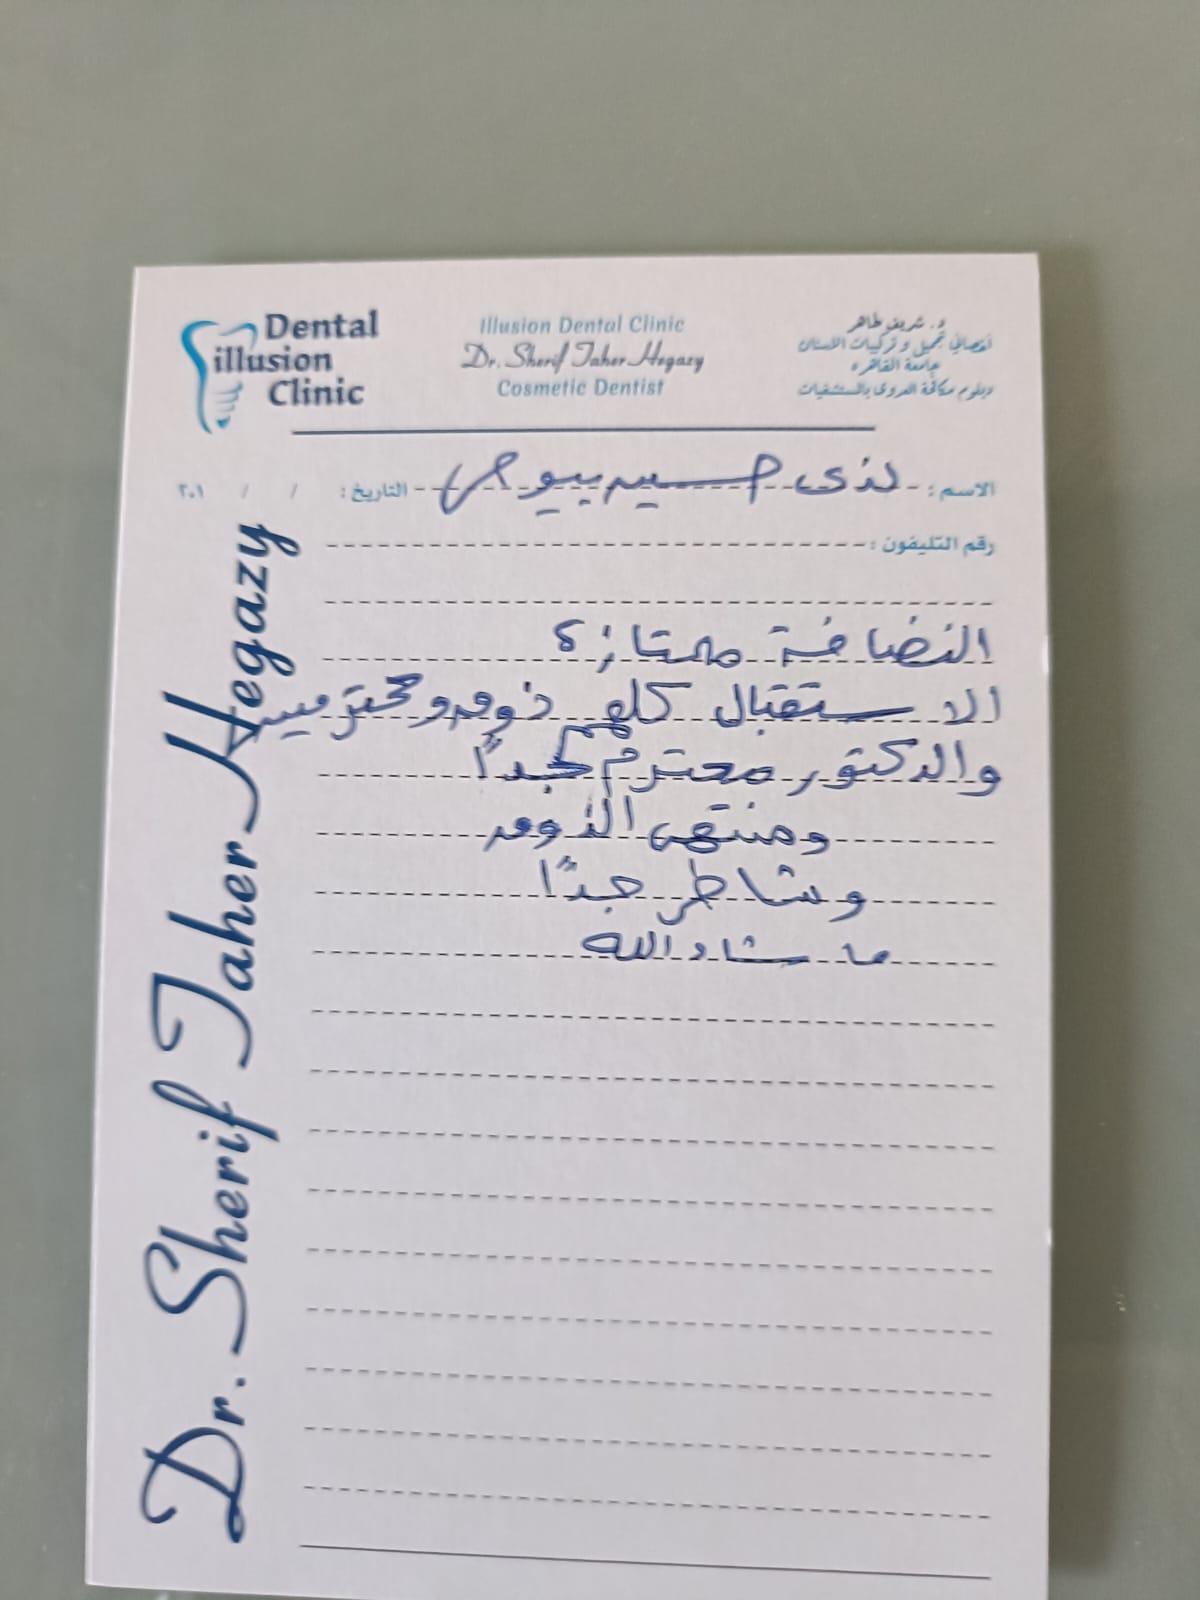 Dental
illusion
Clinic
Illusion Dental Clinic
Dr. Sherif Taher Hegazy
Cosmetic Dentist
د. شريف طاهر
أخصائي تجميل و تركيبات الاسنان
جامعة القاهرة
دبلوم مكافحة العدوى بالمستشفيات
الاسم : حسين بيومى
التاريخ : / / ٢٠١
رقم التليفون :
النضافة ممتازة
الاستقبال كلهم ذوق ومحترمين
والدكتور محترم جدًا
ومنتهى الذوق
وشاطر جدًا
ما شاء الله
Dr. Sherif Taher Hegazy